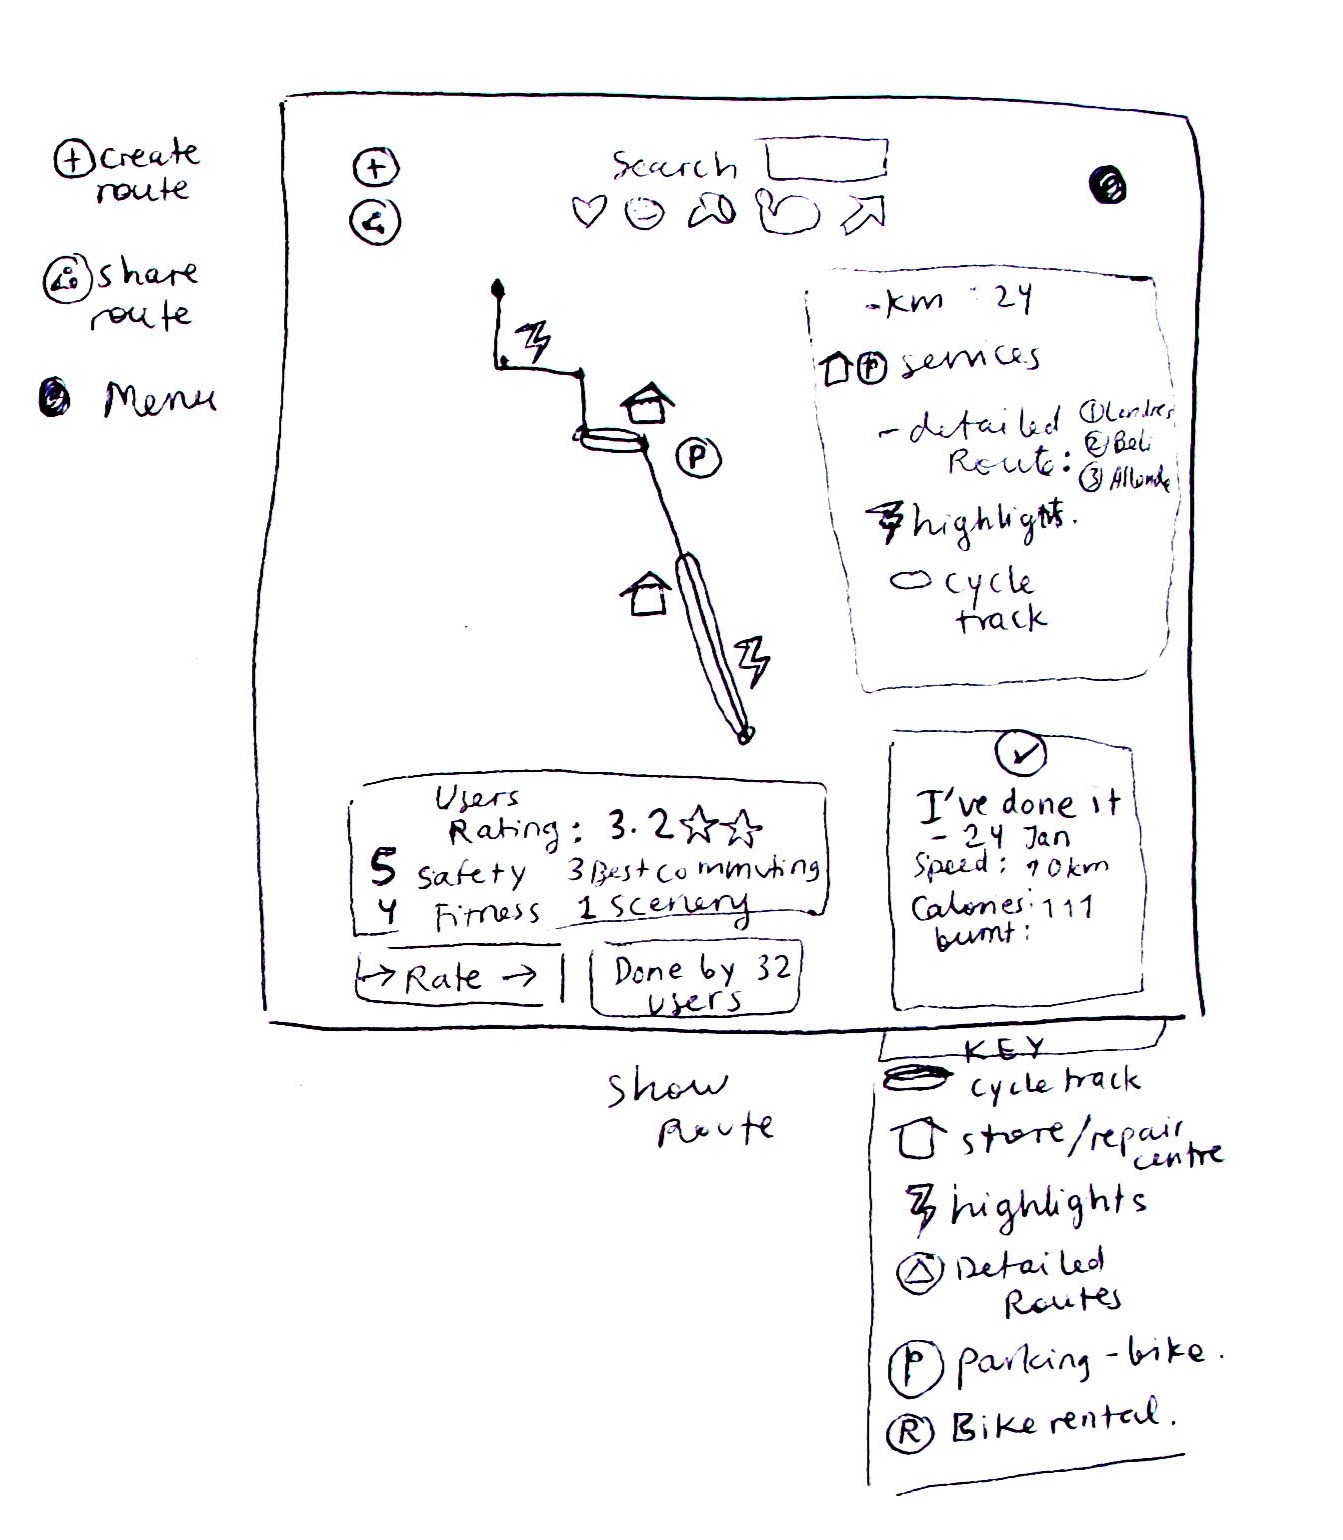 create
route
share
route
Menu
Search
-km : 24
P services
- detailed
Route:
① Londres
②
③
highlights.
cycle
track
P
Users
Rating: 3.2
5 Safety 3 Best commuting
4 Fitness 1 Scenery
→ Rate →
Done by 32
users
I've done it
- 24 Jan
Speed: 10km
Calories: 111
burnt:
Show
Route
KEY
cycle track
store/repair
centre
highlights
Detailed
Routes
P parking - bike.
R Bike rental.